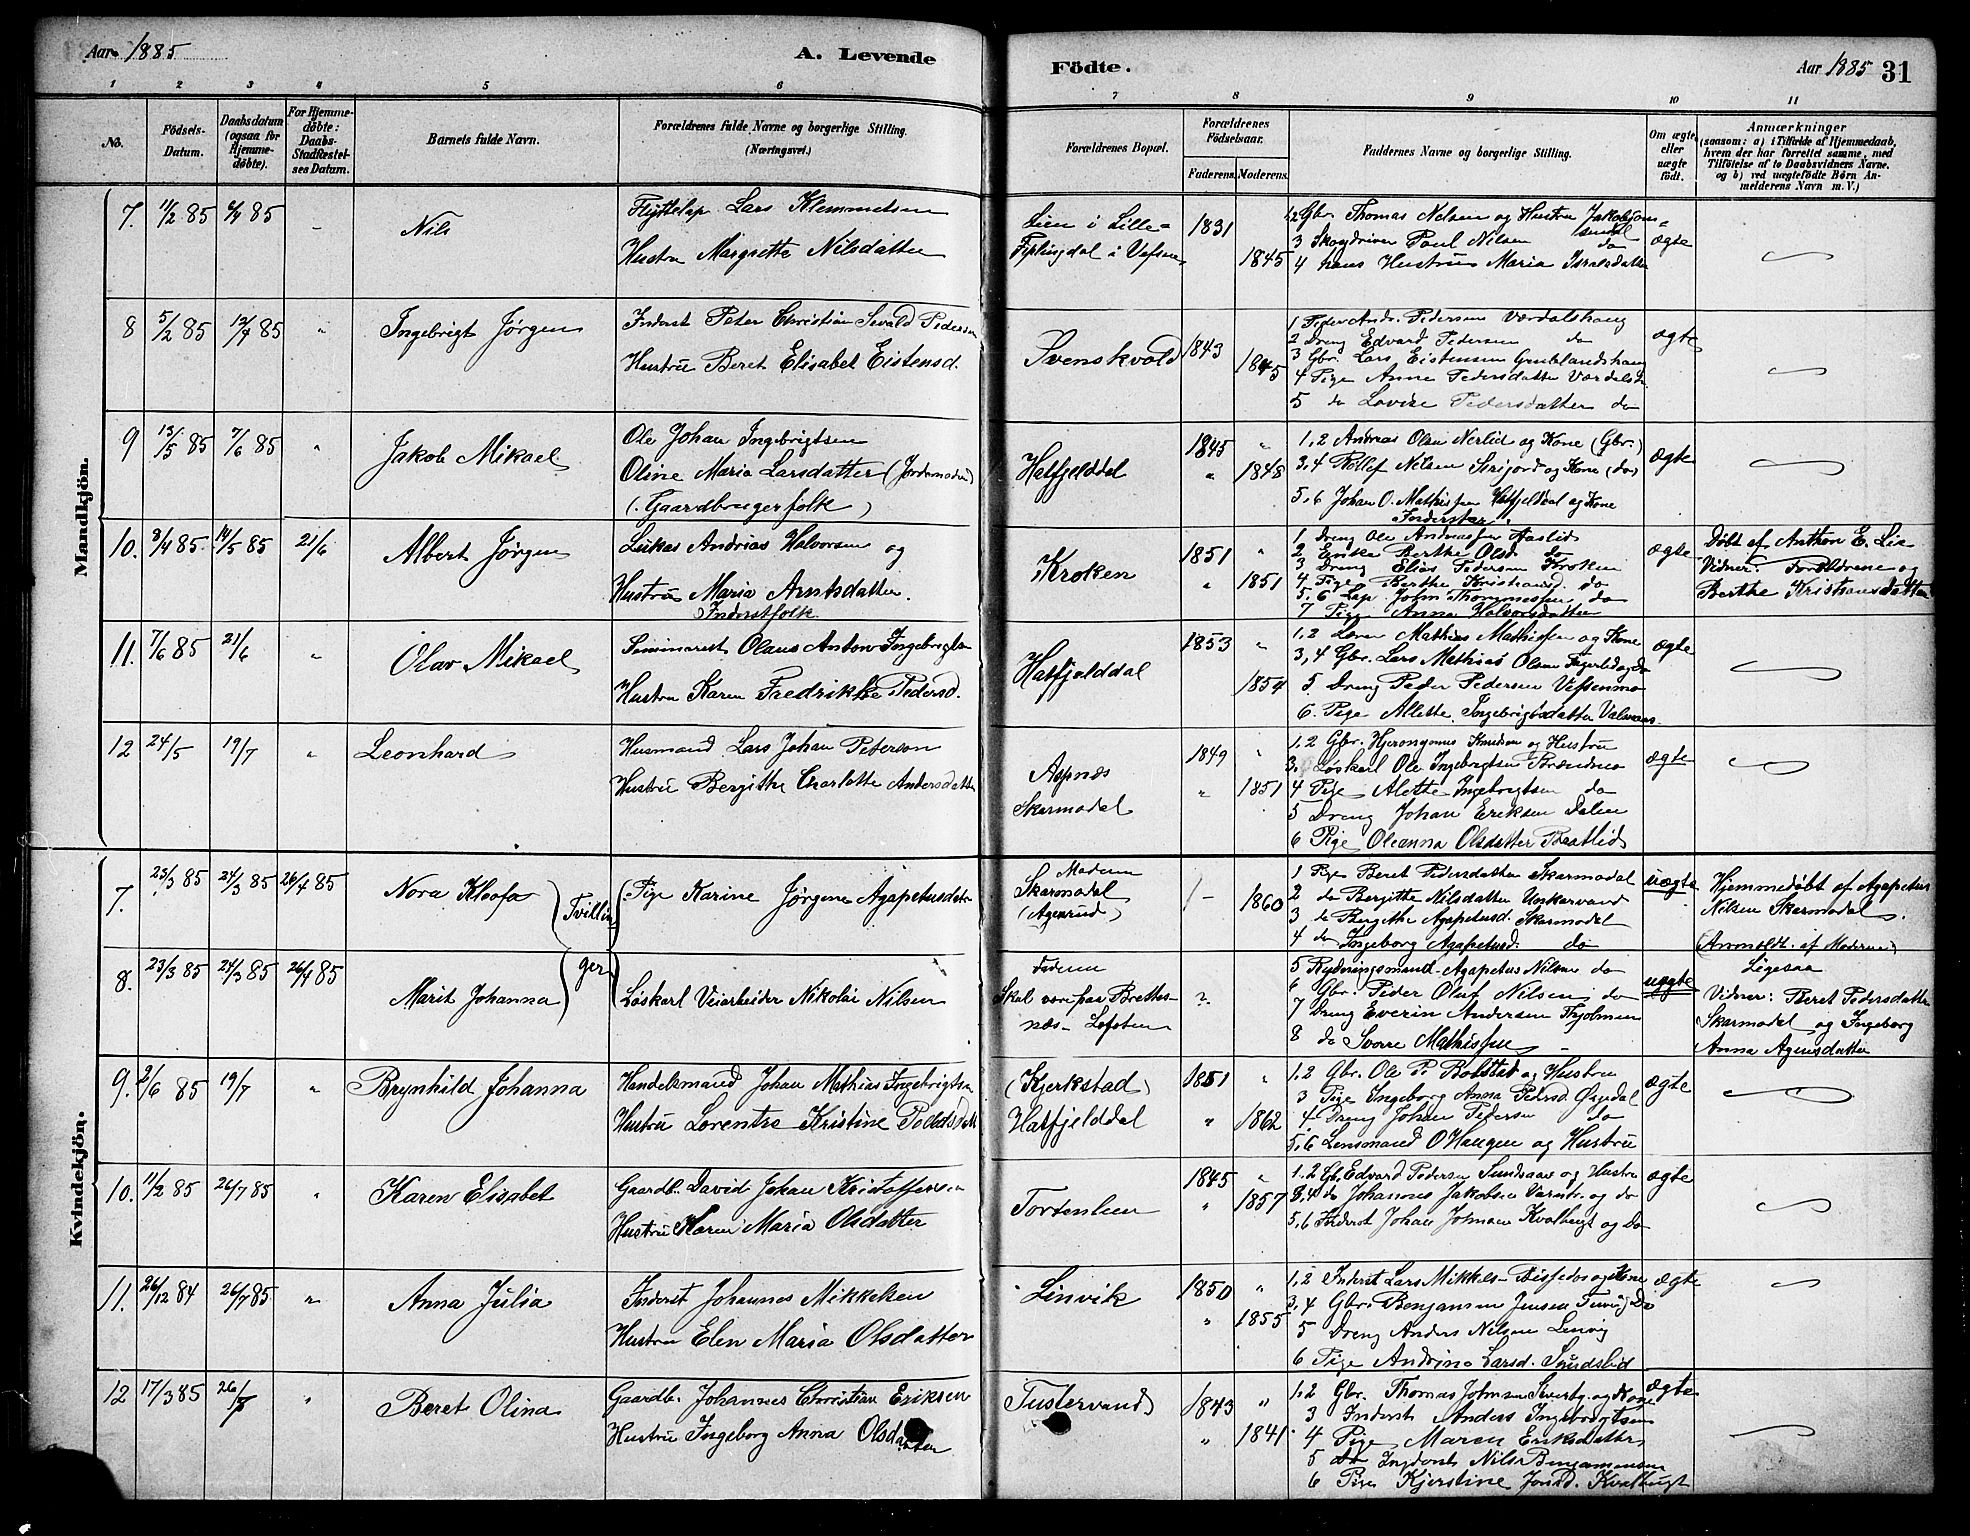 Aar 1885
A. Levende
Födte.
Aar 1885 31
1 2 3 4 5 6 7 8 9 10 11
No.
Födsels-
Datum.
Daabsdatum
(ogsaa for
Hjemme-
döbte).
For Hjemme-
döbte:
Daabs-
Stadfæstel-
ses Datum.
Barnets fulde Navn.
Forældrenes fulde Navne og borgerlige Stilling.
(Næringsvei.)
Forældrenes Bopæl.
Forældrenes
Födselsaar.
Faderens. Moderens.
Faddernes Navne og borgerlige Stilling.
Om ægte
eller
uægte
födt.
Anmærkninger
(saasom: a) i Tilfælde af Hjemmedaab,
hvem der har forrettet samme, med
Tilföielse af to Daabsvidners Navne.
og b) ved uægtefödte Börn An-
melderens Navn m. V.)
Mandkjön.
7. 11/2 85 6/4 85 "
Nils
Flyttelap Lars Klemmetsen
Hustru Margrette Nilsdatter
Lien i Lille-
Fiplingdal i Vefsen
1831
1845
1,2 Gbr. Thomas Nilsen og Hustru
3 Skogdriver Paul Nilsen do
4 hans Hustru Maria Israelsdatter
ægte
8 5/2 85 12/4 85 "
Ingebrigt Jørgen
Inderst Peter Christian Sivald Pedersen
Hustru Beret Elisabet Eistensd.
Svenskvold
1843
1845
1 Peder Andr. Pedersen Værdalshaug
2 Dreng Edvard Pedersen do
3 Gbr. Lars Eistensen Grublandshaug
4 Pige Anne Pedersdatter
5 do Lovise Pedersdatter do
ægte
9 13/5 85 7/6 85 "
Jakob Mikael
Ole Johan Ingebrigtsen
Oline Maria Larsdatter (Jordemoder)
(Gaardbrugerfolk)
Hatfjelddal
1845 "
" 1848
1,2 Andreas Olsen Nerlid og Kone (Gbr.)
3,4 Rollef Nilsen Sirijord og Kone (do)
5,6 Johan O. Mathissen Hatfjelddal og Kone
Inderster
ægte
10. 3/4 85. 14/5 85 21/6
Albert Jørgen
Lukas Andrias Halvorsen og
Hustru Maria Arntsdatter.
Inderstfolk
Kroken
1851 "
" 1851
1 Dreng Ole Andreassen Aaslid
2 Enke Berthe Olsd. do
3 Dreng Elias Pedersen Kroken
4 Pige Berthe Kristiansd. do
5,6 Lap John Thommessen do
7 Pige Anna Halvorsdatter
ægte
Døbt af Anthon E. Lie
Vidner: Forældrene og
Berthe Kristiansdatter
11. 7/6 85 21/6 "
Olav Mikael
Seminarist Olaus Anton Ingebrigtsen
Hustru Karen Fredrikke Pedersd.
Hatfjelddal
1853 "
1854
1,2 Lærer Mathias Mathissen og Kone
3,4 Gbr. Lars Mathias Olsen
5 Dreng Peder Pedersen Vefsenmo
6. Pige Allette Ingebrigtsdatter
ægte
12 24/5 19/7 "
Leonhard
Husmand Lars Johan Peterson
Hustru Bergithe Charlotte Andersdatter
Aspnæs
Skarmodal
1849 "
" 1851
1,2 Gbr. Hjeronymus Knudsen og Hustru
3. Løskarl Ole Ingebrigtsen Brændmo
4 Pige Alette Ingebrigtsen do
5 Dreng Johan Eriksen Dalen
6 Pige Oleanna Olsdatter Braatlid
ægte
Kvindekjön.
7. 23/3 85 24/3 85 26/4 85
Nora Kleofa
(Tvillin-
Pige Karine Jørgine Agapetusdatter
Moderen
Skarmodal
(Agenrud)
/ - 1860
1 Pige Beret Pedersdatter Skarmodal
2 do Bergitte Nilsdatter Unkervand
3 do Bergithe Agapetusd. Skarmodal
4 do Ingeborg Agapetusd. do
uægte
Hjemmedøbt af Agapetus
Nilsen Skarmodal.
(Anmeldt af Moderen)
8. 23/3 85 24/3 85 26/4 85
Marit Johanna
ger)
Løskarl Veiarbeider Nikolai Nilsen
Faderen
Skal være paa Brettes-
næs - Lofoten
?
5 Rydningsmand Agapetus Nilsen do
6 Gbr. Peder Oluf Nilsen do
7 Dreng Everin Andersen
8 do Sverre Mathissen -
uægte
Ligesaa
Vidner: Beret Pedersdatter
Skarmodal og Ingeborg
Anna Agensdatter
9. 2/6 85 19/7 "
Brynhild Johanna
Handelsmand Johan Mathias Ingebrigtsen
Hustru Lorentze Kristine
(Kjerkstad)
Hatfjelddal
1851 "
" 1862
1,2 Gbr. Ole P. Bolstad og Hustru
3 Pige Ingeborg Anna Pedersd
4 Dreng Johan Pedersen do
5,6 Lensmand O Haugen og Hustru
ægte
10. 11/2 85 26/7 85 "
Karen Elisabet
Gaardb. David Johan Kristoffersen
Hustru Karen Maria Olsdatter
Tortenlien
1845 "
" 1857
1,2 Gbr. Edvard Pedersen og Hustru
3,4 do Johannes Jakobsen og do
5,6 Inderst Johan Johnsen Kvalbugt og do
ægte
11. 26/12 84 26/7 85 "
Anna Julia
Inderst Johannes Mikkelsen
Hustru Elen Maria Olsdatter
Linvik
1850 "
" 1855
1,2 Inderst Lars Mikkels- og Kone
3,4 Gbr. Benjamin Jensen do
5 Dreng Anders Nilsen Linvig
6 Pige Andrine Larsd.
ægte
12 17/3 85 26/7 "
Beret Olina
Gaardb. Johannes Christian Eriksen
Hustru Ingeborg Anna Olsdatter
Tustervand
1843 "
" 1841
1,2 Gbr. Thomas Johnsen og Kone
3 Inderst Anders Ingebrigtsen
4 Pige Maren Eriksdatter
5 Nils Benjaminsen
6 Pige Kjerstine Jonsd. Kvalbugt
ægte